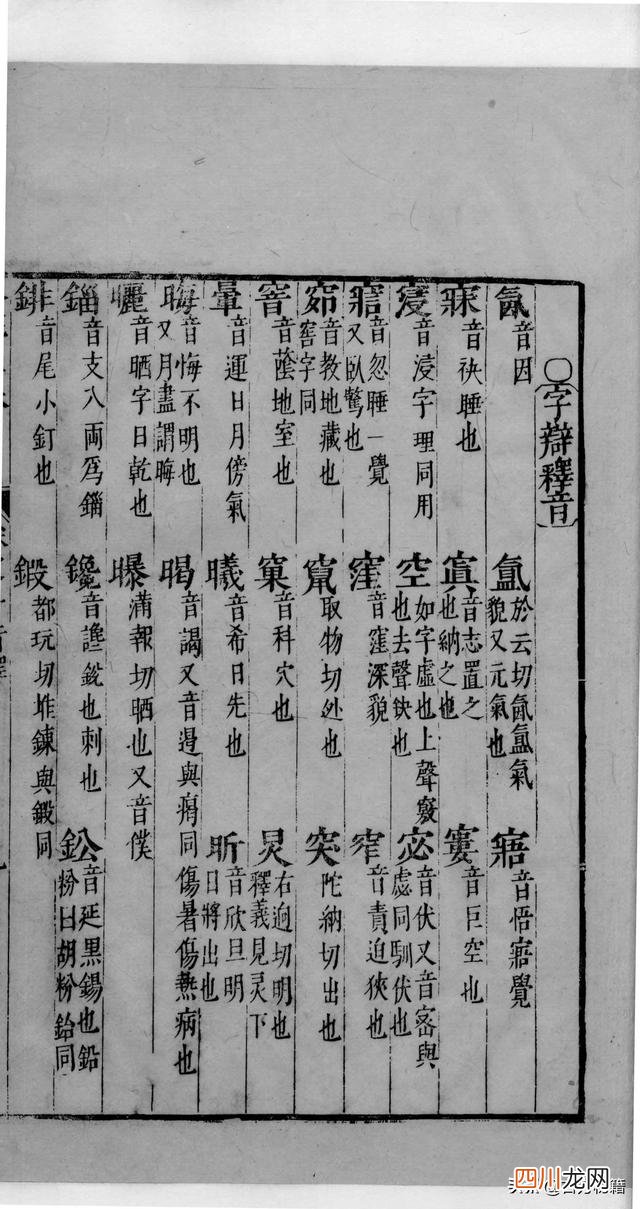 〇字辯釋音
氤 音因 氳 於云切氤氳氣貌又元氣也 寤 音悟寤覺
寐 音袂睡也 寘 音志置之也納之也 窶 音巨空也
寖 音浸字理同用 空 如字虛也上聲竅也去聲缺也 宓 音伏又音密與處同馴伏也
寣 音忽睡一覺又臥驚也 窪 音窪深貌 窄 音責迫狹也
窌 音教地藏也窖字同 竄 取物切外也 突 陀納切出也
窨 音蔭地室也 窠 音科穴也 炅 右逈切明也釋義見炅下
暈 音運日月傍氣 曦 音希日先也 昕 音欣旦明日將出也
晦 音悔不明也又月盡謂晦 暍 音謁又音遏與痟同傷暑傷熱病也
曬 音晒字日乾也 曝 滿報切晒也又音僕
錙 音支八兩爲錙 鑱 音讒銳也刺也 鈆 音延黑錫也鉛粉曰胡粉鈶同
錐 音尾小釘也 鍛 都玩切堆鍊與鍛同
四川龙网